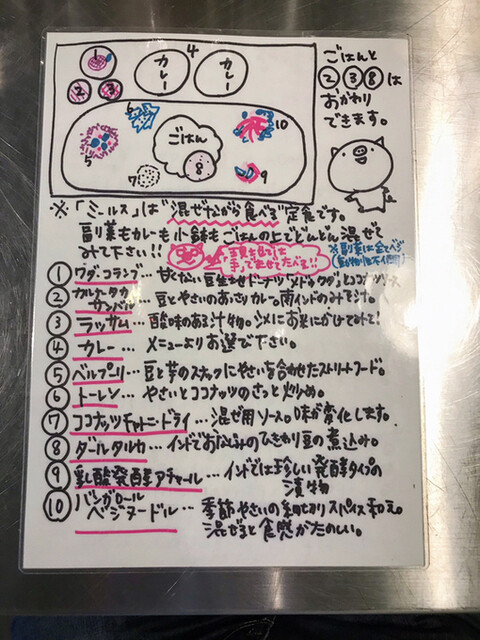 1
2
3
4
カレー
カレー
ごはん
5
6
7
8
9
10
ごはんと
②③⑧は
おかわり
できます。
※「ミールス」は"混ぜながら食べる"定食です。
副菜もカレーも小鉢もごはんの上でどんどん混ぜて
みて下さい!!
① ワダ・コランブ…甘くない豆生地ドーナツ
② カルナータカ
サンバル…豆とやさいのあっさりカレー。南インドのみそ汁。
③ ラッサム…酸味のある汁物。〆にお米にかけてみて!
④ カレー…メニューよりお選び下さい。
⑤ ベルプリ…豆と芋のスナックにやさいを合わせたストリートフード。
⑥ トーレン…やさいとココナッツのさっと炒め。
⑦ ココナッツチャトニードライ…混ぜ用ソース。味が変化します。
⑧ ダールタルカ…インドでおなじみのひきわり豆の煮込み。
⑨ 乳酸発酵アチャール…インドでは珍しい発酵タイプの
漬物
⑩ バンガロール
ベジヌードル…季節やさいの細切りスパイス和え。
混ぜると食感がたのしい。